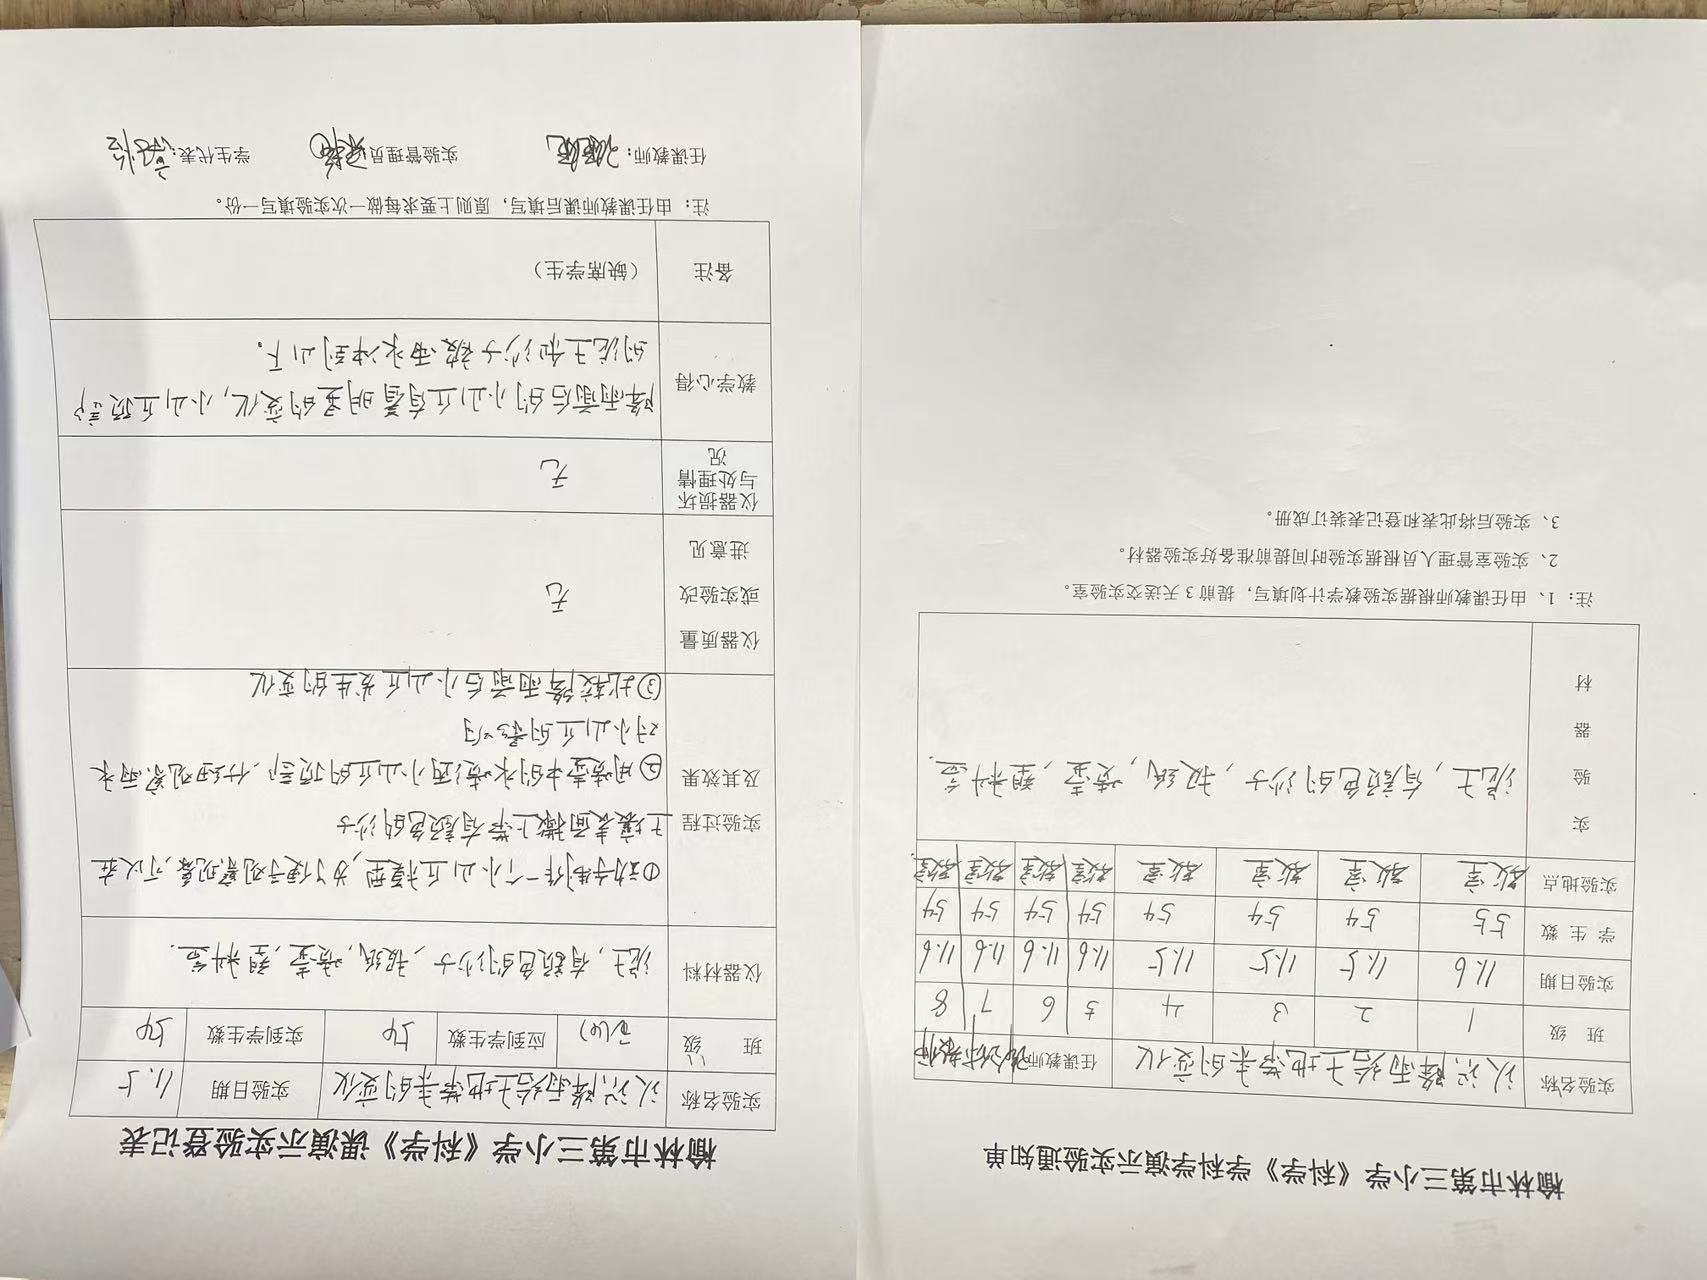 榆林市第三小学《科学》学科学演示实验通知单
实验名称 认识降雨给土地带来的变化 任课教师
班 级 1 2 3 4 5 6 7 8
实验日期 11.6 11.5 11.5 11.5 11.6 11.6 11.6 11.6
学 生 数 55 54 54 54 54 54 54 54
实验地点 教室 教室 教室 教室 教室 教室 教室 教室
实
验
器
材
泥土,有颜色的沙子,报纸,喷壶,塑料盒.
注:1、由任课教师根据实验教学计划填写,提前 3 天送交实验室。
2、实验室管理人员根据实验时间提前准备好实验器材。
3、实验后将此表和登记表装订成册。
榆林市第三小学《科学》课演示实验登记表
实验名称 认识降雨给土地带来的变化 实验日期 11.5
班 级 应到学生数 54 实到学生数 54
仪器材料 泥土,有颜色的沙子,报纸,喷壶,塑料盒.
实验过程
及其效果
①动手制作一个小山丘模型,为了便于观察现象,可以在
土壤表面撒上带有颜色的沙子
②用喷壶中的水喷洒小山丘的顶部,仔细观察雨水
对小山丘的影响
③比较降雨前后小山丘发生的变化
仪器质量
或实验改
进意见
无
仪器损坏
与处理情
况
无
教学心得
降雨前后的小山丘有着明显的变化,小山丘顶部
的泥土和沙子被雨水冲到山下。
备注 (缺席学生)
注:由任课教师课后填写,原则上要求每做一次实验填写一份。
任课教师: 实验管理员 学生代表: